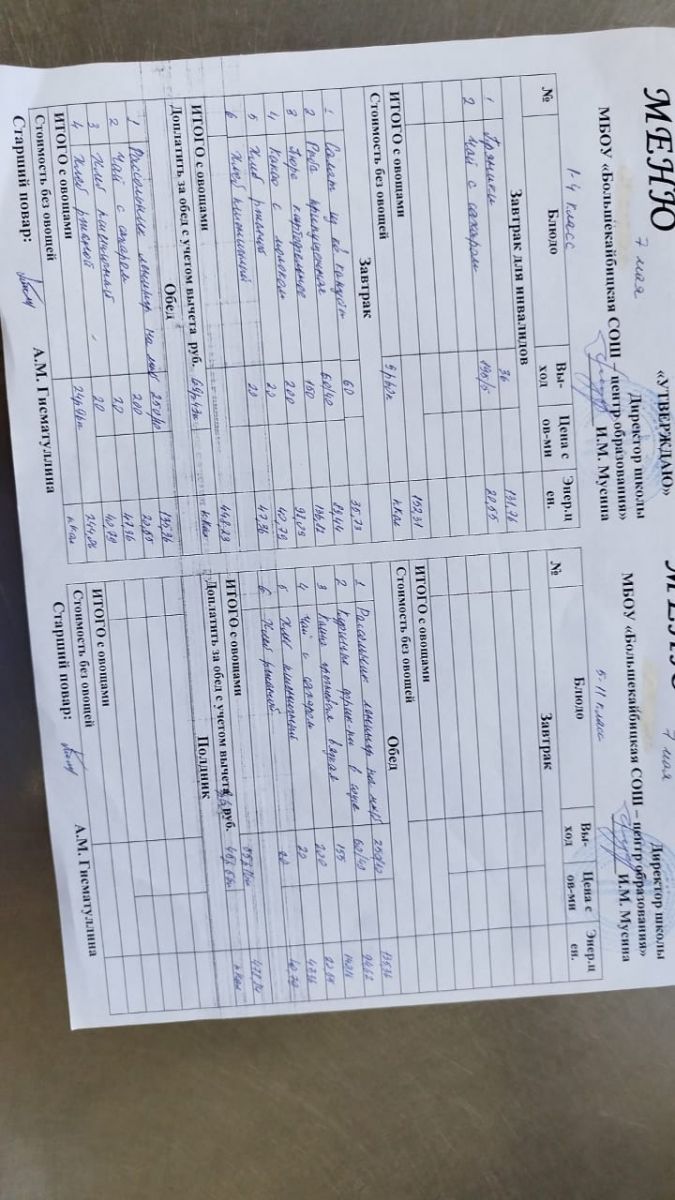 МЕНЮ
7 мая
«УТВЕРЖДАЮ»
Директор школы
МБОУ «Большекайбицкая СОШ – центр образования»
И.М. Мусина
1-4 класс
№ Блюдо Вы-ход Цена с ов-ми Энер.ц ен.
Завтрак для инвалидов
1 Пряники 36 131.76
2 Чай с сахаром 190/5 20,55
ИТОГО с овощами 152,31
Стоимость без овощей ккал
Завтрак
1 Салат из 60 35,73
2 Рыба припущенная 60/40
3 Пюре картофельное 150
4 Какао с молоком 200
5 Хлеб ржаной 20 40,79
6 Хлеб пшеничный 20 47,36
ИТОГО с овощами 448.23
Доплатить за обед с учетом вычета руб. ккал
Обед
1 Рассольник ленингр на м/б 250/10 135,36
2 Чай с сахаром 200 20,55
3 Хлеб пшеничный 20 47.36
4 Хлеб ржаной 20 40.79
ИТОГО с овощами 244,06
Стоимость без овощей ккал
Старший повар: А.М. Гисматуллина
МЕНЮ
7 мая
Директор школы
МБОУ «Большекайбицкая СОШ – центр образования»
И.М. Мусина
5-11 класс
№ Блюдо Вы-ход Цена с ов-ми Энер.ц ен.
Завтрак
ИТОГО с овощами
Стоимость без овощей
Обед
1 Рассольник ленингр на м/б 250/10 135,36
2 Куриные в соусе 60/40
3 Каша вязкая 155
4 Чай с сахаром 200
5 Хлеб пшеничный 20 47.36
6 Хлеб ржаной 20 40,79
ИТОГО с овощами
Доплатить за обед с учетом вычета руб. ккал
Полдник
ИТОГО с овощами
Стоимость без овощей
Старший повар: А.М. Гисматуллина